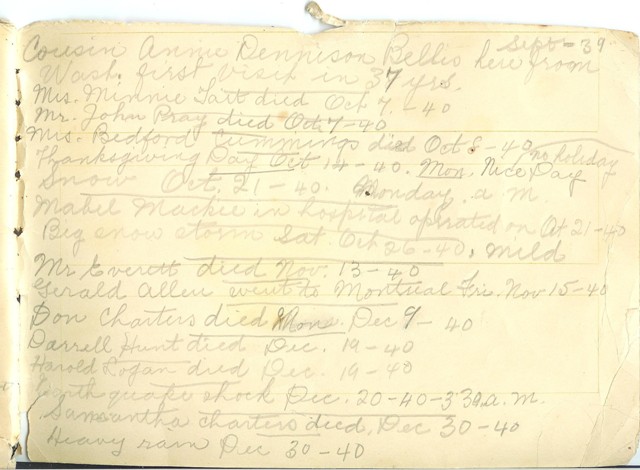 Sept - 39
Cousin Annie Dennison Bellis here from
Wash. first visit in 37 yrs.
Mrs. Minnie Tait died Oct 7. - 40
Mr. John Pray died Oct. 7 - 40
Mrs. Bedford Cummings died Oct 8 - 40
no holiday
Thanksgiving Day Oct 14 - 40. Mon. Nice Day
Snow Oct. 21 - 40. Monday. a.m.
Mabel Mackie in hospital operated on Oct 21 - 40
Big snow storm Sat. Oct 26 - 40, mild
Mr Everett died Nov. 13 - 40
Gerald Allen went to Montreal Fri. Nov 15 - 40
Don Charters died Mon. Dec 9 - 40
Darrell Hunt died Dec. 19 - 40
Harold Logan died Dec. 19 - 40
Earth quake shock Dec. 20 - 40 - 3.32 a.m.
Samantha Charters died, Dec 30 - 40
Heavy rain Dec 30 - 40